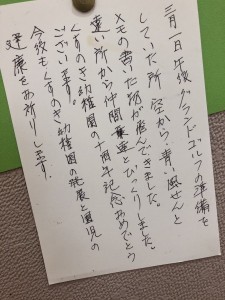 三月一日午後グランドゴルフの準備を
していた所 空から青い風せんと
メモの書いた紙が飛んできました。
遠い所から仲間裏迄とびっくりしました。
くすのき幼稚園の十周年記念おめでとう
ございます。
今後もくすのき幼稚園の発展と園児の
健康をお祈りします。